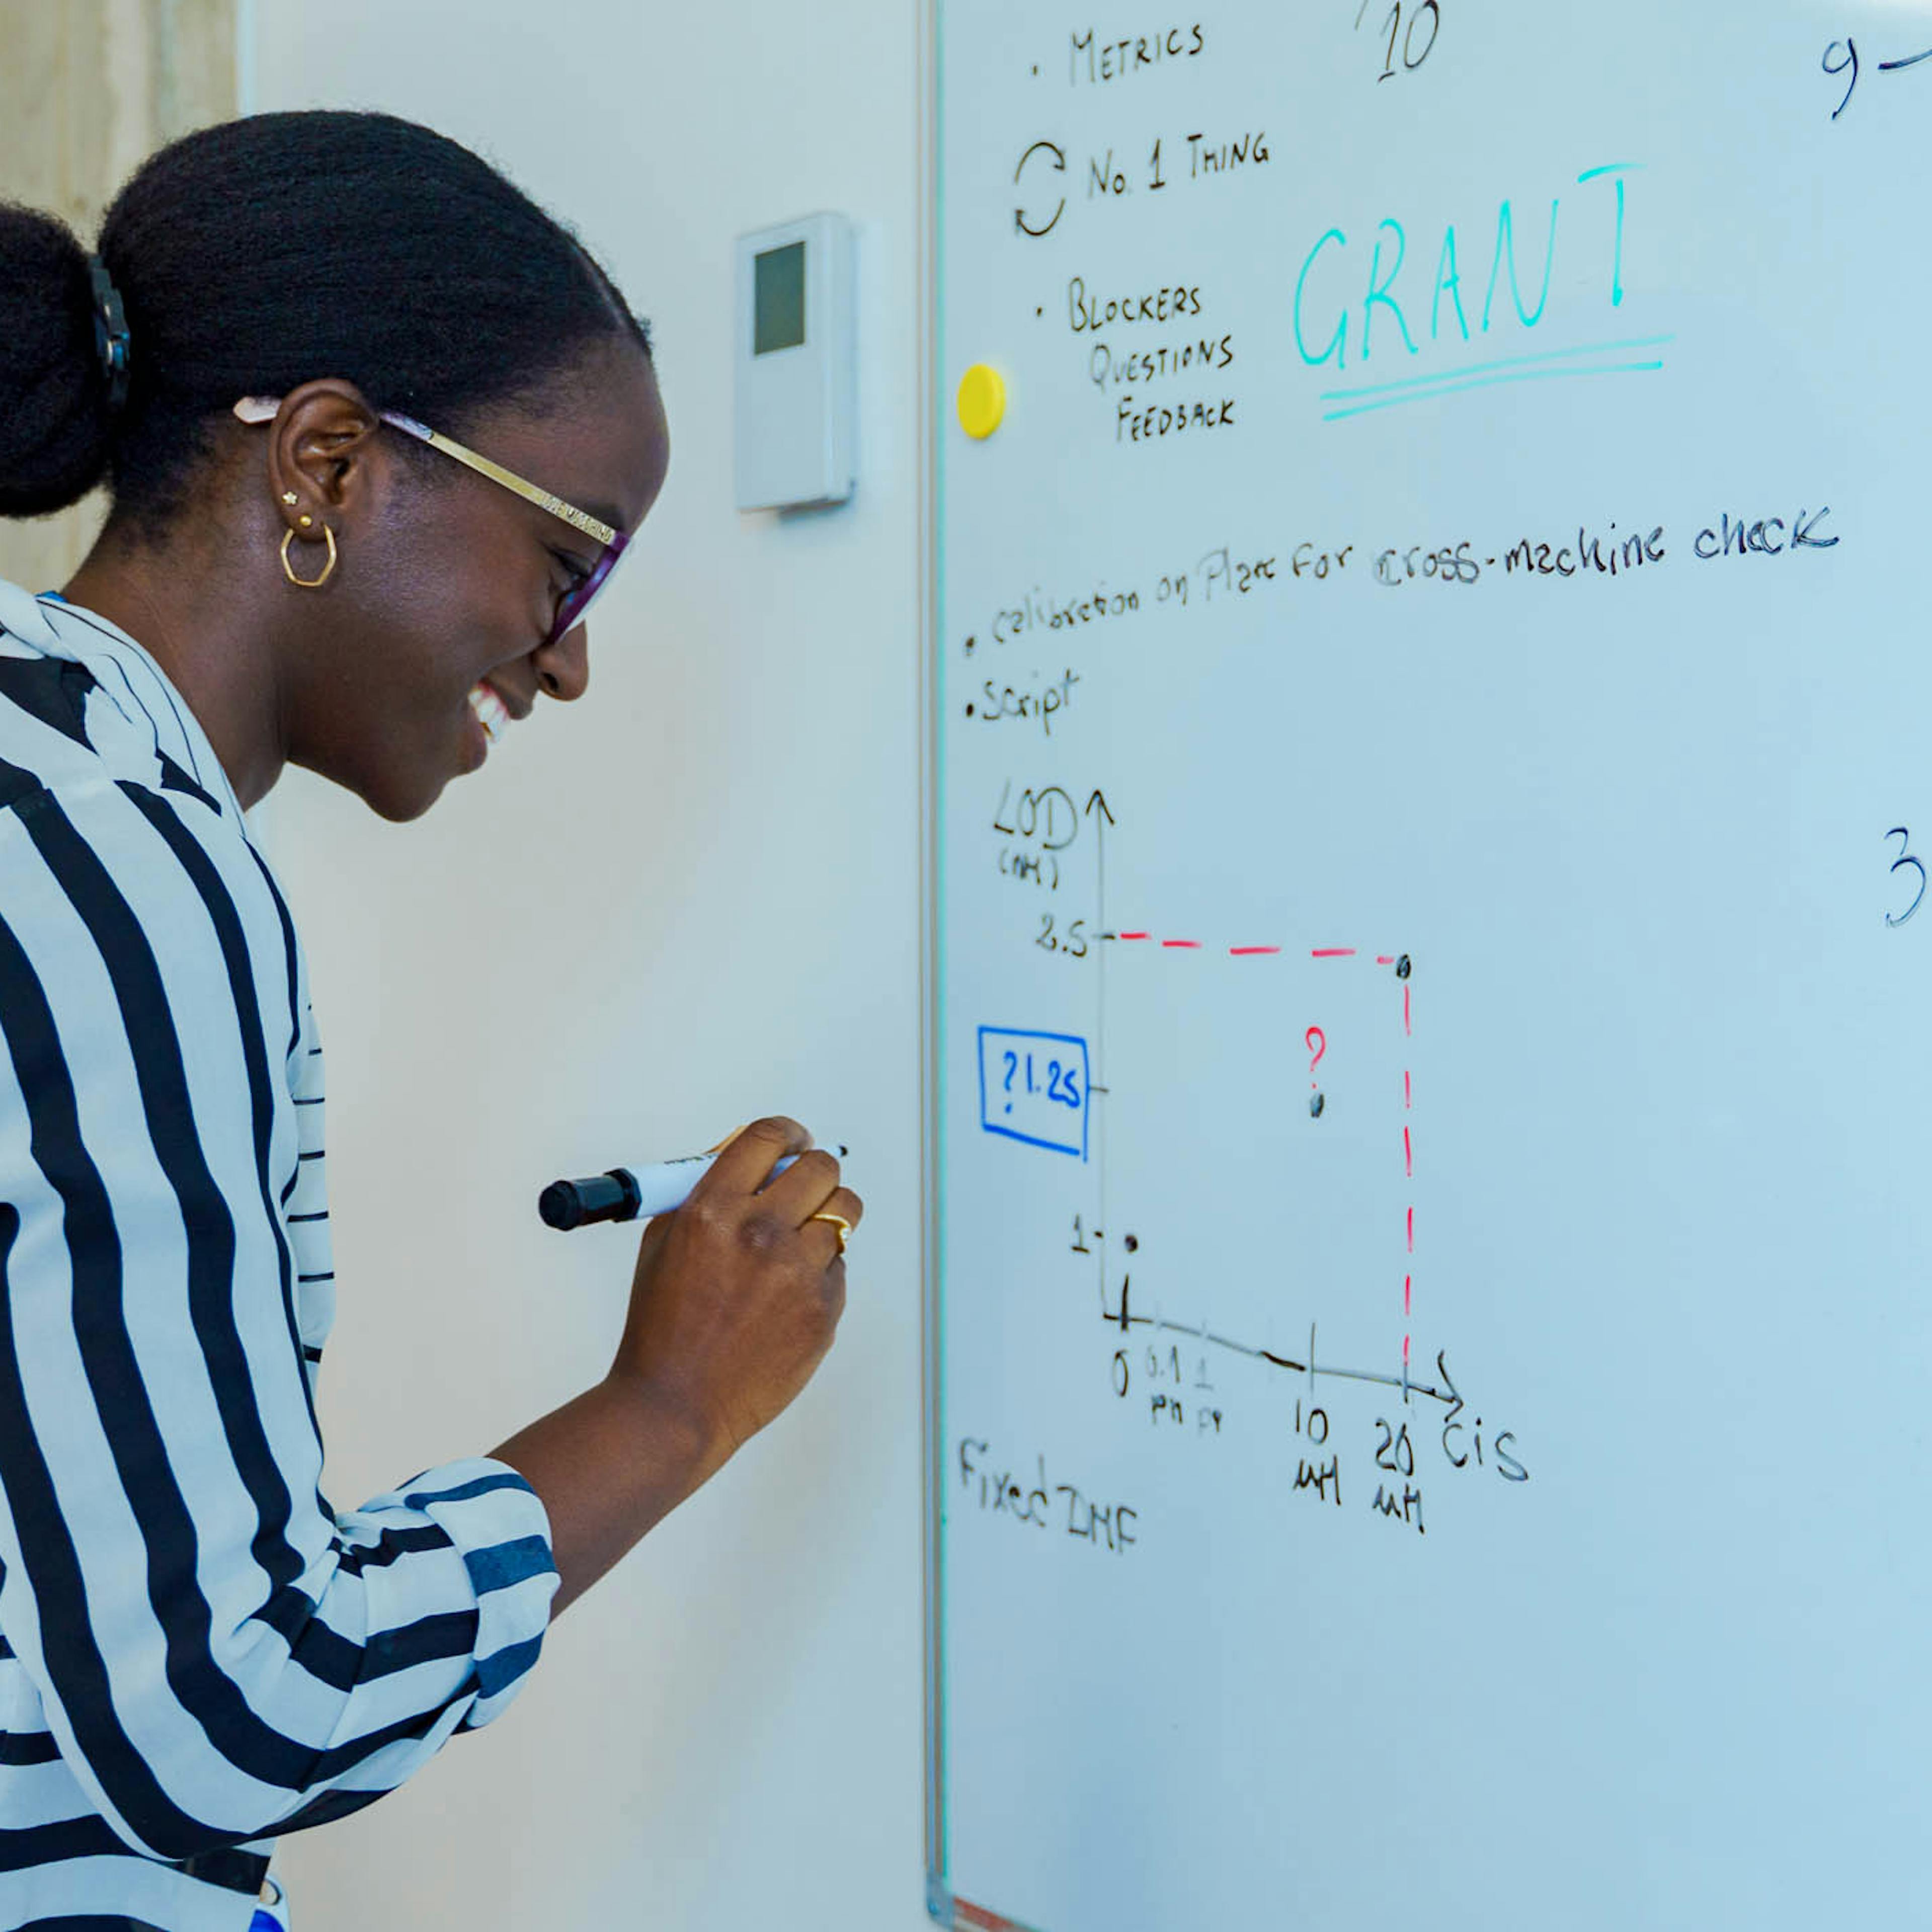 • METRICS
'10
9-
No. 1 THING
GRANT
• BLOCKERS
QUESTIONS
FEEDBACK
• calibration on Plate for cross-machine check
• Script
LOD
(nM)
3
2.5
?
? 1.25
1
0 0.1 1 10 20 Cis
µM µM
Fixed